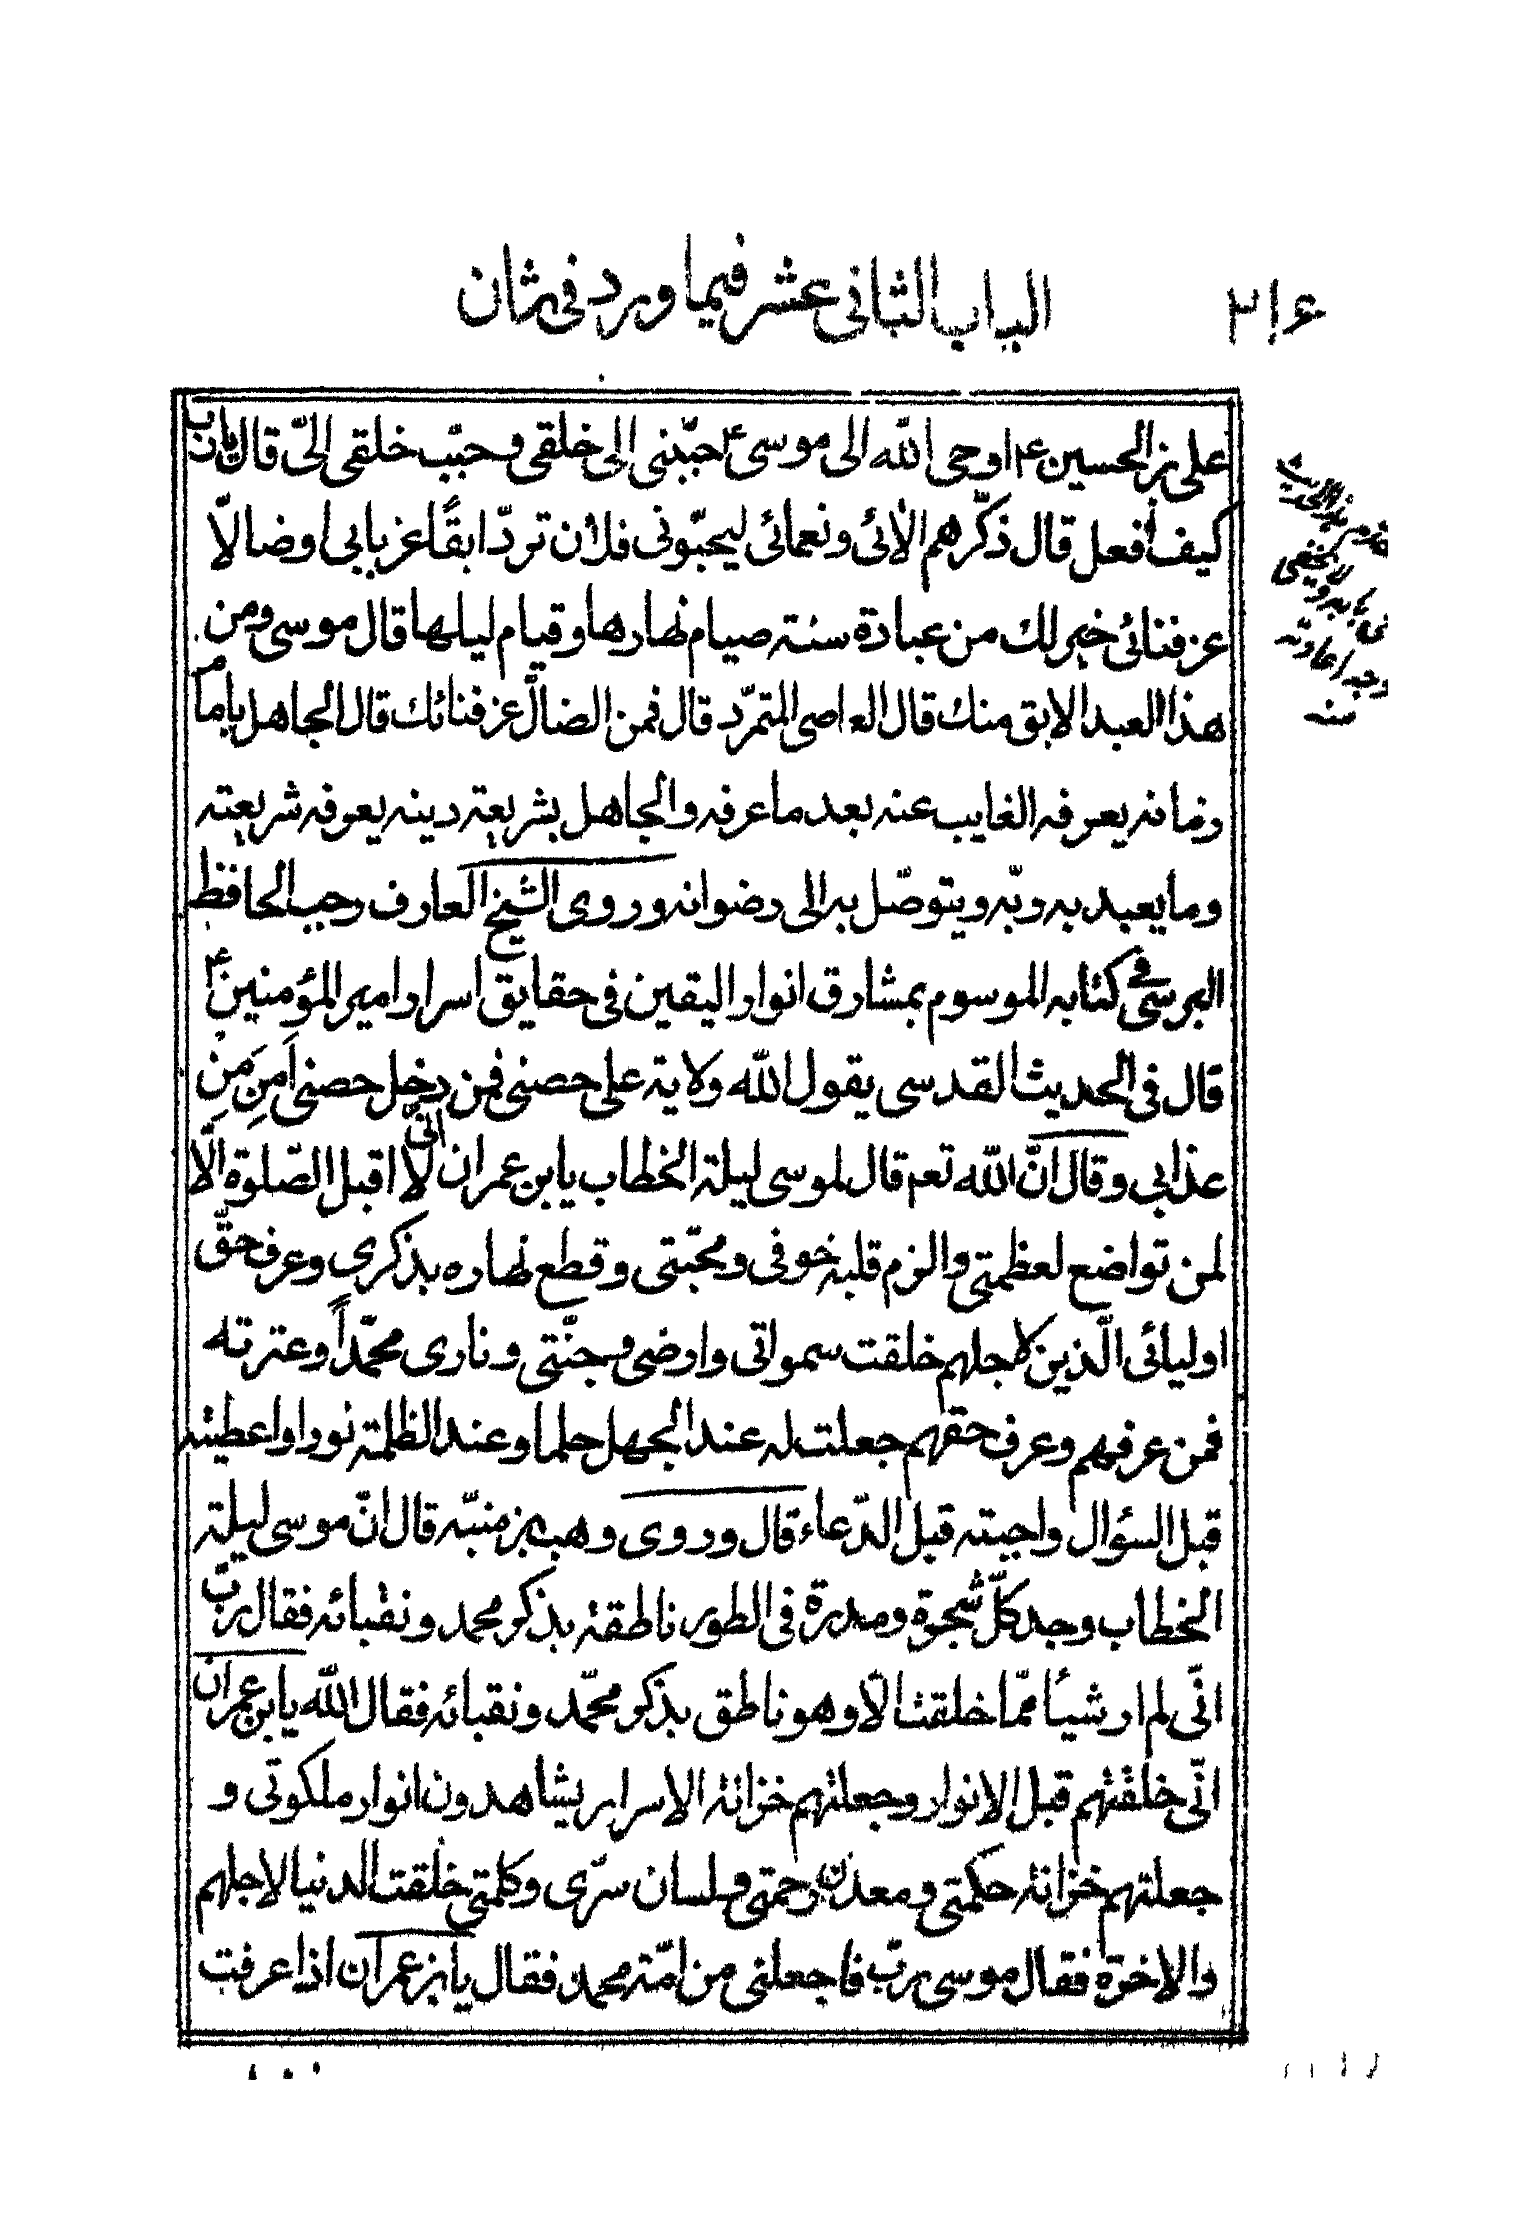 ٢١٤ الباب الثانى عشر فيما ورد فى شان
على بن الحسين ع اوحى الله الى موسى ع حبّبنى الى خلقى و حبّب خلقى الىّ قال يا رب
كيف أفعل قال ذكّرهم الائى و نعمائى ليحبّونى فلان تردّ ابقًا عن بابى او ضالّا
عن فنائى خير لك من عبادة سنة صيام نهارها و قيام ليلها قال موسى و من
هذا العبد الابق منك قال العاصى المتمرّد قال فمن الضالّ عن فنائك قال الجاهل بامام
زمانه يعرفه الغايب عنه بعد ما عرفه و الجاهل بشريعة دينه يعرفه شريعته
و ما يعبد به ربّه و يتوصّل به الى رضوانه و روى الشيخ العارف رجب الحافظ
البرسى فى كتابه الموسوم بمشارق انوار اليقين فى حقايق اسرار امير المؤمنين ع
قال فى الحديث القدسى يقول الله ولاية على حصنى فمن دخل حصنى اَمِنَ مِن
عذابى و قال انّ الله تعم قال لموسى ليلة الخطاب يابن عمران انّى لا اقبل الصّلوة الّا
لمن تواضع لعظمتى و الزم قلبه خوفى و محبّتى و قطع نهاره بذكرى و عرف حقّ
اوليائى الّذين لاجلهم خلقت سمواتى و ارضى و جنّتى و نارى محمّداً و عترته
فمن عرفهم و عرف حقهم جعلت له عند الجهل حلما و عند الظلمة نورا و اعطيته
قبل السؤال و اجبته قبل الدّعاء قال و روى وهب بن منبّه قال انّ موسى ليلة
الخطاب وجد كلّ شجرة و مدرة فى الطور ناطقة بذكر محمد و نقبائه فقال ربّ
انّى لم ار شيئا ممّا خلقت الّا و هو ناطق بذكر محمّد و نقبائه فقال الله يابن عمران
انّى خلقتهم قبل الانوار و جعلتهم خزانة الاسرار يشاهدون انوار ملكوتى و
جعلتهم خزانة حكمتى و معدن رحمتى و لسان سرّى و كلمتى خلقت الدنيا لاجلهم
و الاخرة فقال موسى ربّ فاجعلنى من امّة محمد فقال يا بن عمران اذا عرفت
منه